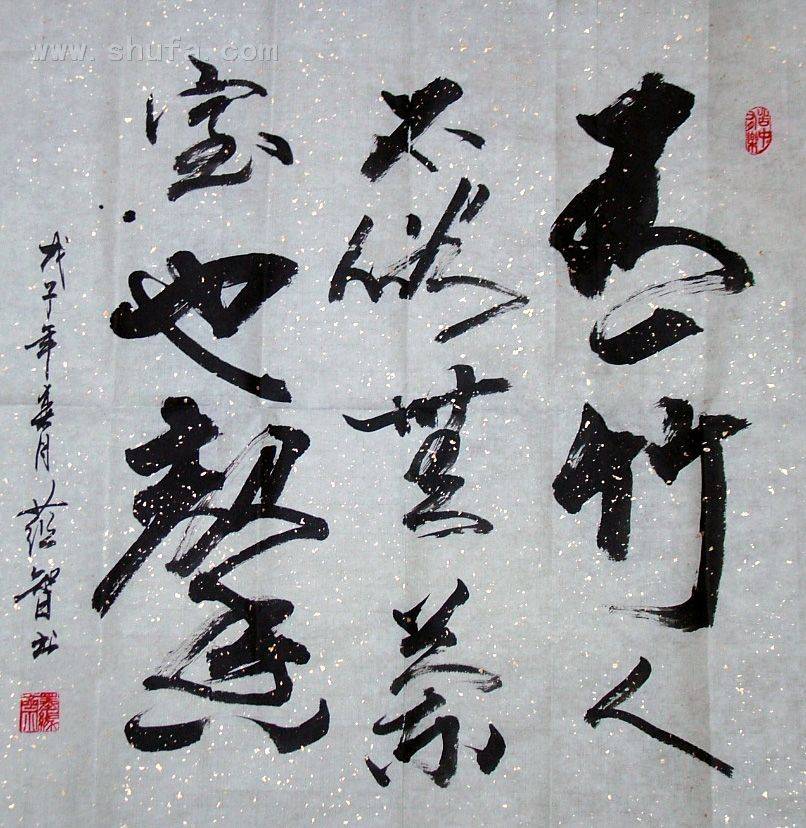 www.shufa.com
有竹人
不俗無茶
室也馨
戊子年春月蕴智书